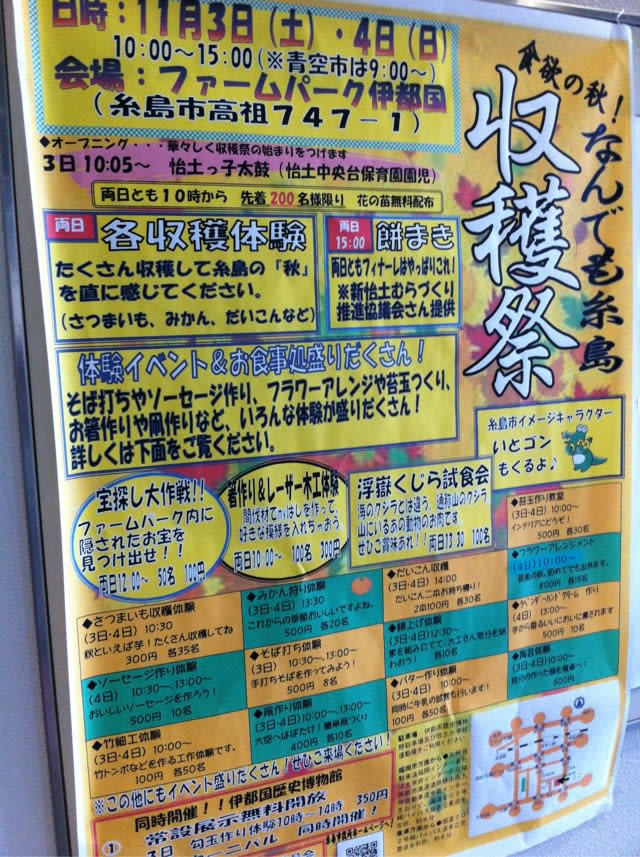 日時：11月3日（土）・4日（日）
10:00～15:00（※青空市は9:00～）
会場：ファームパーク伊都国
（糸島市高祖747-1）
食欲の秋！なんでも糸島
収穫祭
◆オープニング・・・華々しく収穫祭の始まりをつげます
3日 10:05～ 怡土っ子太鼓（怡土中央台保育園園児）
両日とも10時から 先着200名様限り 花の苗無料配布
両日
各収穫体験
たくさん収穫して糸島の「秋」
を直に感じてください。
（さつまいも、みかん、だいこんなど）
両日
15:00
餅まき
両日ともフィナーレはやっぱりこれ！
※新怡土むらづくり
推進協議会さん提供
体験イベント＆お食事処盛りだくさん！
そば打ちやソーセージ作り、フラワーアレンジや苔玉つくり、
お箸作りや凧作りなど、いろんな体験が盛りだくさん！
詳しくは下面をご覧ください。
糸島市イメージキャラクター
いとゴン
もくるよ♪
宝探し大作戦!!
ファームパーク内に
隠されたお宝を
見つけ出せ!!
両日12:00～ 50名 100円
箸作り＆レーザー木工体験
間伐材でMyはしを作って、
好きな模様を入れちゃおう。
両日10:00～ 100名 300円
浮嶽くじら試食会
海のクジラとは違う、通称山のクジラ
山にいるあの動物のお肉です
ぜひご賞味あれ!!
両日13:30 100名
◆苔玉作り教室
(3日・4日) 10:00～
インテリアにどうぞ！
500円 各30名
◆さつまいも収穫体験
(3日・4日) 10:30
秋といえば芋！たくさん収穫してね
300円 各35名
◆みかん狩り体験
(3日・4日) 13:30
これからの季節おいしいですよね。
500円 各20名
◆だいこん収穫
(3日・4日) 14:00
だいこん二本お持ち帰り！
2本100円 各30名
◆フラワーアレンジメント
(4日)10:00～
800円 各15名
◆ソーセージ作り体験
(4日) 10:30～、13:00～
おいしいソーセージを作ろう！
500円 10名
◆そば打ち体験
(3日・4日)10:30～、13:00～
手打ちそばを作ってみよう！
500円 8名
◆棟上げ体験
(3日・4日)12:30～
家を組み立てて、大工さん気分を味
わおう！ 各10名
◆ラベンダーハンドクリーム 作り
(4日) 13:00～
手から香るいいにおいに癒されます
500円 各10名
◆竹細工体験
(3日・4日) 10:00～
竹トンボなどを作る工作体験です。
100円 各50名
◆凧作り体験
(3日・4日)10:00～、13:00～
大空へはばたけ！簡単凧つくり
400円 各10名
◆バター作り体験
(3日・4日)10:00～
同時に牛の乳搾りも行います！
100円 各50名
◆陶芸体験
(3日・4日)10:00～
500円
※この他にもイベント盛りだくさん！ぜひご来場ください！
同時開催！！伊都国歴史博物館
常設展示無料開放
3日 勾玉作り体験10時～14時 350円
同時開催！